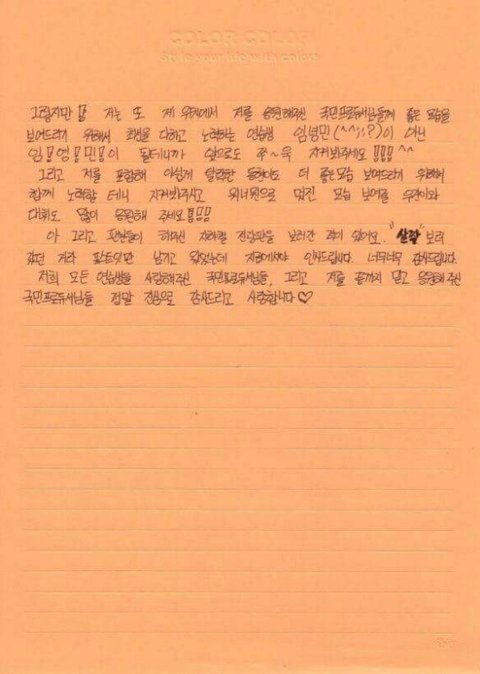 COLOR COLOR
Style your life with color!
그렇지만!! 저는 또 제 위치에서 저를 응원해주신 국민프로듀서님들께 좋은 모습을
보여드리기 위해서 최선을 다하고 노력하는 연습생 임영민(^^;;?)이 아닌
임!영!민!이 될테니까 앞으로도 쭈~욱 지켜봐주세요!!! ^^
그리고 저를 포함해 아쉽게 탈락한 동현이도 더 좋은모습 보여드리기 위해서
함께 노력할 테니 지켜봐주시고 워너원으로 멋진 모습 보여줄 우진이와
대휘도 많이 응원해 주세요!!!
아 그리고 팬분들이 해주신 지하철 전광판을 보러간 적이 있어요. "살짝" 보러
갔던 거라 포스트잇만 남기고 왔었는데 지금에서야 인사드립니다. 너무너무 감사드립니다.
저희 모든 연습생들 사랑해주신 국민프로듀서님들, 그리고 저를 끝까지 믿고 응원해 주신
국민프로듀서님들 정말 진심으로 감사드리고 사랑합니다♡